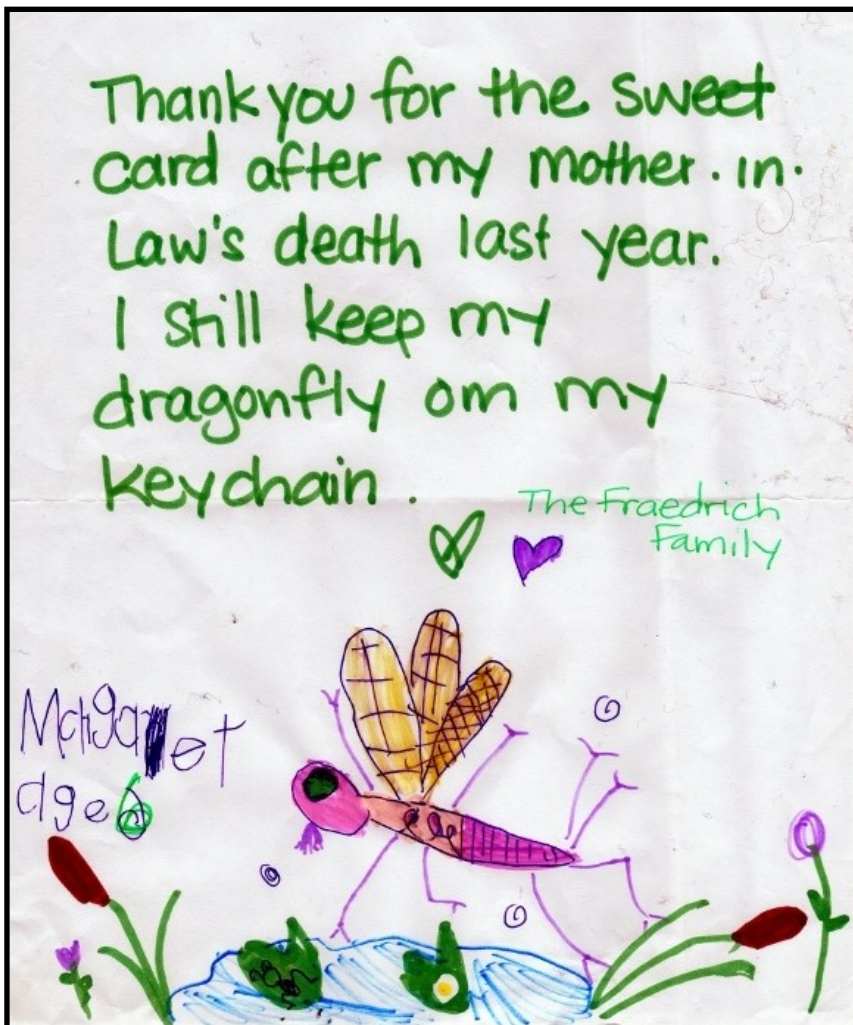 Thank you for the sweet
card after my mother·in·
Law's death last year.
I still keep my
dragonfly om my
keychain.
The Fraedrich
Family
Margaret
age 6